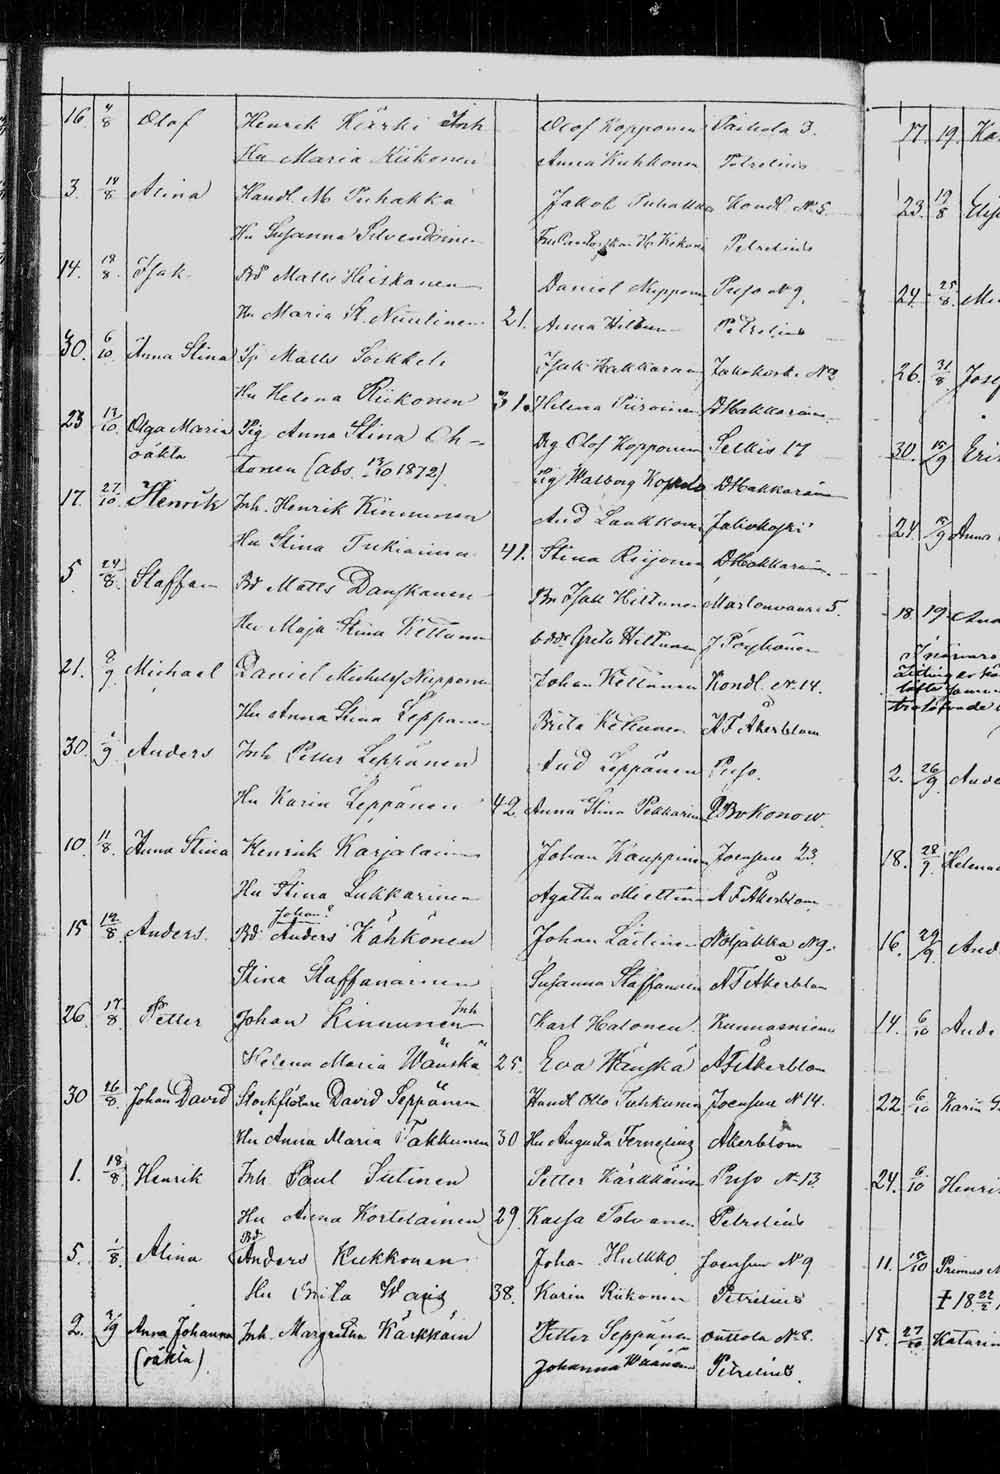 16. 4/8 Olof Henrik Kärki Inh Olof Kopponen Paihola 3.
Hu Maria Kiikonen Anna Kuhkonen Petrelius
3. 18/8 Alina Handl. M. Puhakka Jakob Puhakka Kondl N 5.
Hu Susanna Silvendoinen Petrelius
14. 18/8 Isak Bd Matts Heiskanen Daniel Nupponen Puso N 9.
Hu Maria St. Nuutinen 21. Anna Hiltunen Petrelius
30. 6/10 Anna Stina Sj Matts Sockkeli Isak Hakkarain Jakokoski N 2
Hu Helena Riikonen 31. Helena Piiroinen D Hakkarain
23 13/10 Olga Maria Pig Anna Stina Oh- Drg Olof Kopponen Selkis 17
oäkta tonen (abs. 13/10 1872). Pig Walborg D Hakkarain
17. 27/10 Henrik Inh. Henrik Kinnunen And Laukkanen Jakokoski
Hu Stina Tukiainen 41. Stina Riijonen D Hakkarain
5 24/8 Staffan Bd Matts Danskanen Bn Isak Hiltunen Martonvaara 5.
Hu Maja Stina Kettunen Greta Hiltunen J Pöyhönen
21. 9/9 Michael Daniel Michelsf Nupponen Johan Kettunen Kondl. N. 14.
Hu Anna Stina Leppänen Brita Kettunen A F Åkerblom
30. 1/9 Anders Inh Petter Leppänen And Leppänen Puso.
Hu Karin Leppänen 42. Anna Stina Pekkarin
10. 11/8 Anna Stina Henrik Karjalainen Johan Kauppinen Joensuu 23.
Hu Stina Lukkarinen Agatha Miettin A F Åkerblom
Johan?
15 14/8 Anders. Bd Anders Kähkönen Johan Laitinen Noljakka N 9.
Stina Staffanainen Susanna Staffanain A F Åkerblom
26. 17/8 Petter Johan Kinnunen Inh Karl Halonen Kunnasniemi
Helena Maria Wänskä 25. Eva Wänskä A F Åkerblom
30 26/8 Johan David Stockflötare David Seppänen Handl Otto Tuhkunen Joensuu N 14.
Hu Anna Maria Takkunen 30 Hu Augusta Åkerblom
1. 18/8 Henrik Inh Paul Sutinen Petter Kärkkäinen Puso N 13.
Hu Anna Kortelainen 29. Kaisa Tolvanen Petrelius
Bd
5. 1/8 Alina Anders Kukkonen Johan Hulkko Joensuu N 9
Hu Brita 38. Karin Riikonen Petrelius
2. 2/9 Anna Johanna Inh. Margretha Kärkkäin Petter Seppänen N. 8.
(oäkta) Johanna Wäänän Petrelius.
17. 19.
23. 19/8
24. 25/8
26. 31/8 Josef
30. 15/9
24. 15/9 Anna
18. 19
2. 26/9
18. 28/9 Helena
16. 29/9
14. 6/10
22 6/10 Karin
24. 6/10 Henri
11. 15/10 Primus
† 18 22/2
15. 27/10 Katarin